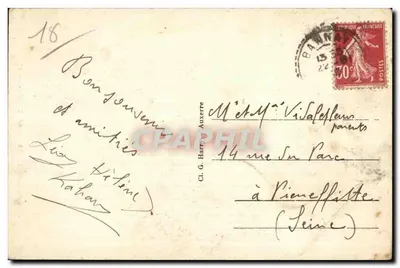 18/
Bon souvenir
et amitiés
Léon Hélène
Kahan
Cl. G. Hars, Auxerre
CPAPHIL
BANNAY
13
22
30c
POSTES
Mr et Mme Vidalefleurs
parents
14 rue du Parc
à Pierrefitte
(Seine)